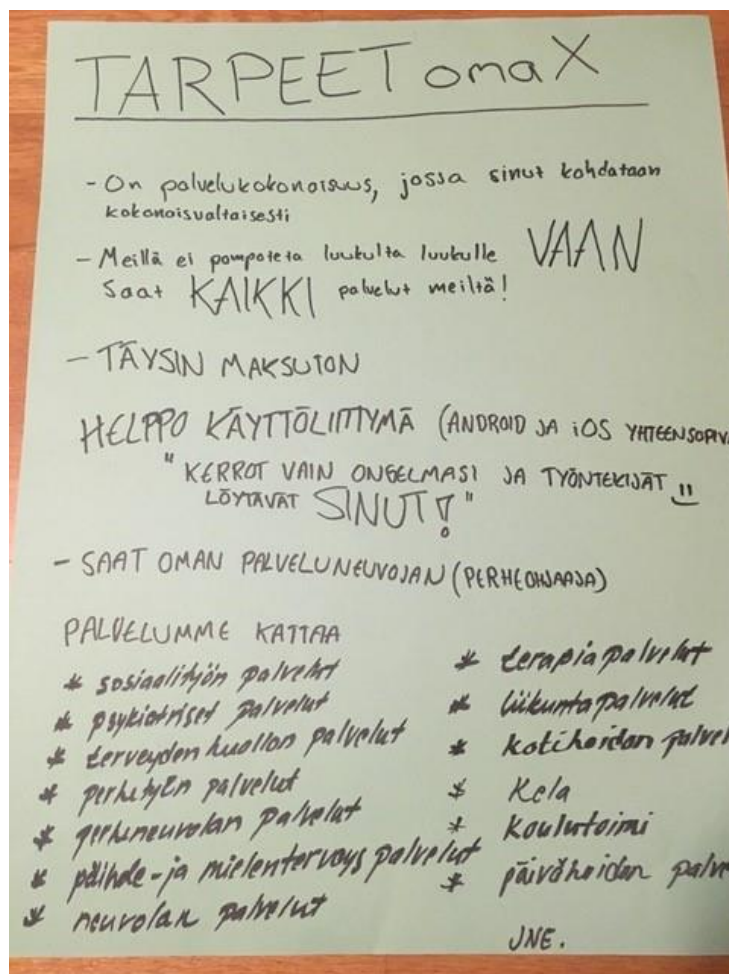 TARPEET omaX
- On palvelukokonaisuus, jossa sinut kohdataan
kokonaisvaltaisesti
- Meillä ei pompoteta luukulta luukulle VAAN
Saat KAIKKI palvelut meiltä!
- TÄYSIN MAKSUTON
HELPPO KÄYTTÖLIITTYMÄ (ANDROID JA iOS YHTEENSOPIVA
"KERROT VAIN ONGELMASI JA TYÖNTEKIJÄT
LÖYTÄVÄT SINUT!"
- SAAT OMAN PALVELUNEUVOJAN (PERHEOHJAAJA)
PALVELUMME KATTAA
* sosiaalityön palvelut
* psykiatriset palvelut
* terveyden huollon palvelut
* perhetyön palvelut
* perheneuvolan palvelut
* päihde- ja mielenterveys palvelut
* neuvolan palvelut
* terapiapalvelut
* liikuntapalvelut
* kotihoidon palvel
* Kela
* koulutoimi
* päivähoidon palve
JNE.